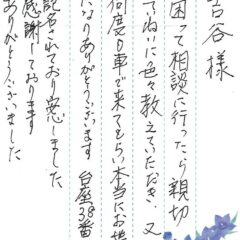 古谷様
困って相談に行ったら親切
ていねいに色々教えていただき、又
何度も車で来てもらい本当にお世
になりありがとうございます 台座38番
記名されており安心しました
感謝しております
ありがとうございました